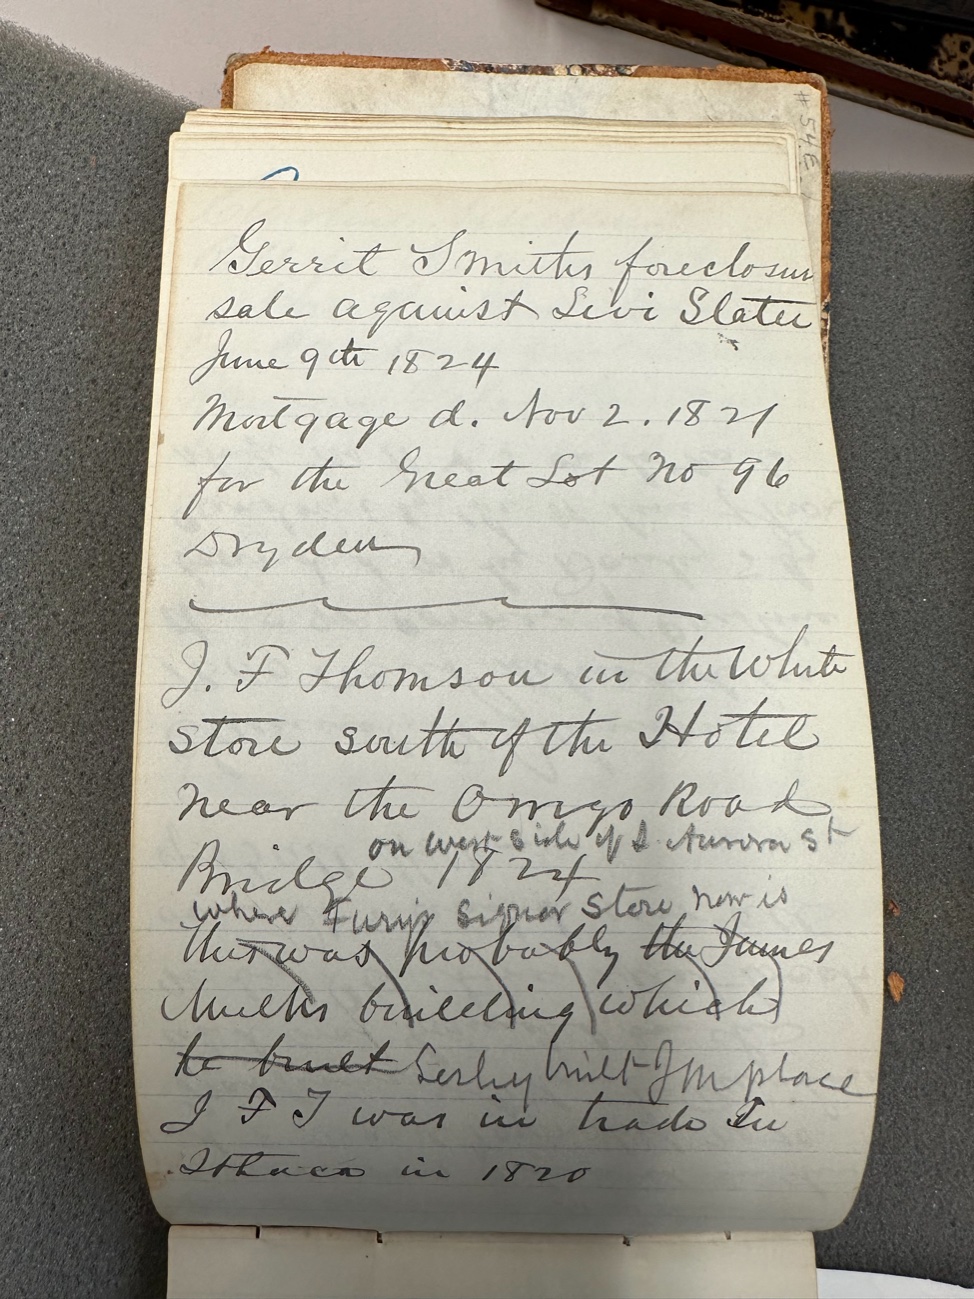 # 54E
Gerrit Smiths foreclosur
sale against Levi Slater
June 9th 1824
Mortgage d. Nov 2. 1821
for the Great Lot No 96
Dryden
J. F Thomson in the White
store south of the Hotel
near the Owego Road
on west side of S. Aurora st
Bridge 1824
where Signor Store now is
this was probably the James
Mulks building which
he built Sesley built J M place
J F T was in trade in
Ithaca in 1820